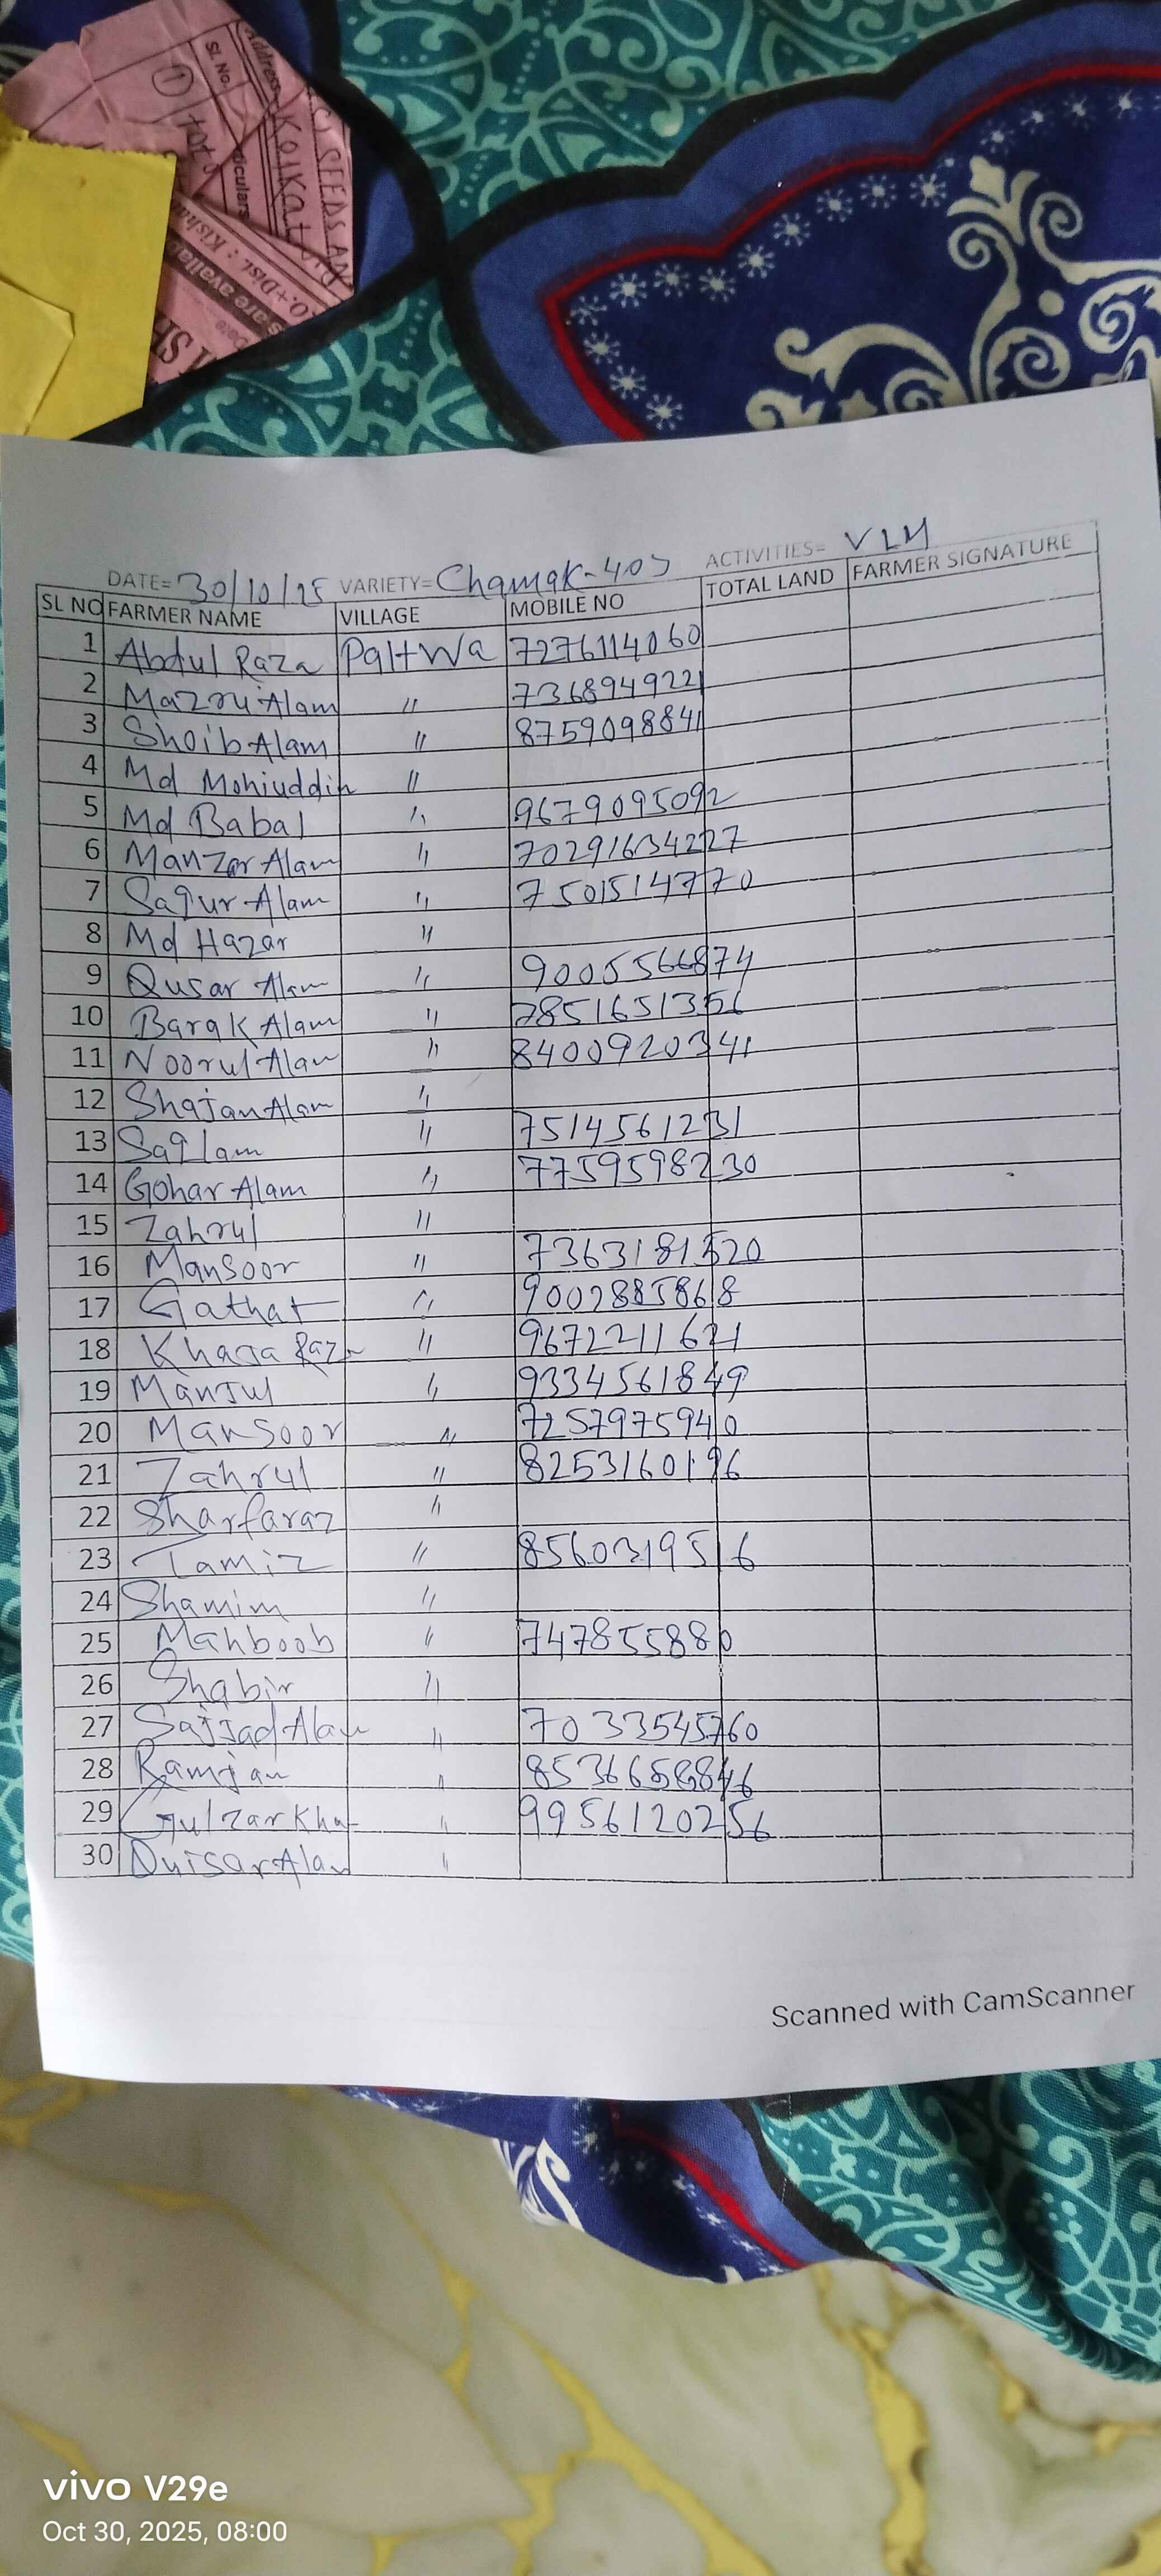 SEEDS AN
Address Kolkata
Sl. No.
ticulars
1
O.+Dist. : Kisha
s are availa
DATE= 30/10/25 VARIETY= Chamak-403 ACTIVITIES= VLM
SL NO FARMER NAME VILLAGE MOBILE NO TOTAL LAND FARMER SIGNATURE
1 Abdul Raza Paltwa 7276114060
2 Mazrui Alam " 7368949221
3 Shoib Alam " 8759098841
4 Md Mohiuddin "
5 Md Babal " 9679095092
6 Manzar Alam " 70291634227
7 Saqur Alam " 7501514770
8 Md Hazar "
9 Qusar Alam " 9005566874
10 Barak Alam " 7851651356
11 Noorul Alam " 8400920341
12 Shajan Alam "
13 Saqlam " 7514561231
14 Gohar Alam " 7759598230
15 Zahrul "
16 Mansoor " 7363181520
17 Gathat " 9002885868
18 Khaja Raza " 9672211621
19 Manjul " 9334561849
20 Mansoor " 7257975940
21 Zahrul " 8253160196
22 Sharfaraz "
23 Tamiz " 8560319516
24 Shamim "
25 Mahboob " 7478555880
26 Shabir "
27 Sajjad Alam " 7033545760
28 Ramjan "
29 Gulzar Kha " 9956120256
30 Quisar Alam "
Scanned with CamScanner
vivo V29e
Oct 30, 2025, 08:00